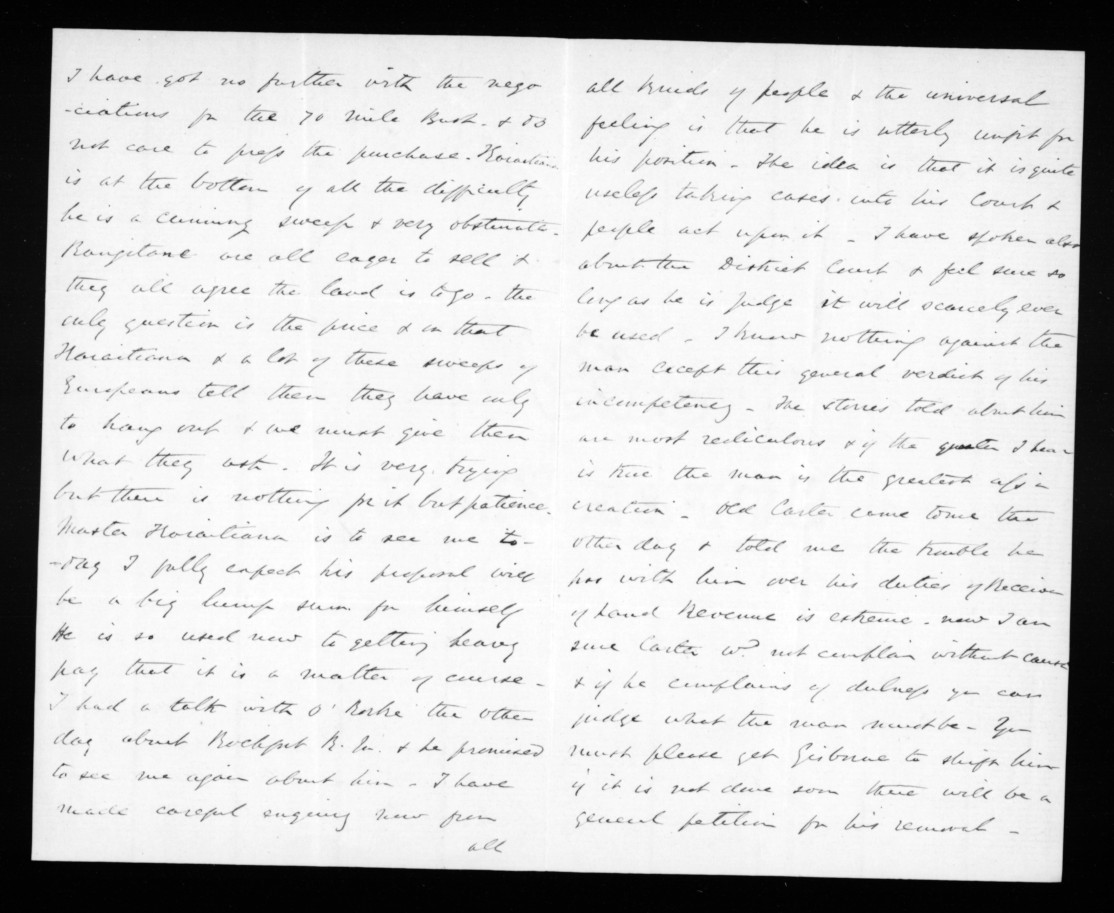 I have got no further with the nego
-ciations for the 70 Mile Bush & do
not care to press the purchase. Karaitiana
is at the bottom of all the difficulty
he is a cunning sweep & very obstinate.
Rangitane are all eager to sell &
they all agree the land is to go - the
only question is the price & on that
Karaitiana & a lot of these sweeps of
Europeans tell them they have only
to hang out & we must give them
what they ask. It is very trying
but there is nothing for it but patience.
Master Karaitiana is to see me to-
-day I fully expect his proposal will
be a big lump sum for himself
He is so used now to getting heavy
pay that it is a matter of course -
I had a talk with O'Rorke the other
day about R.M. & he promised
to see me again about him - I have
made careful enquiry now from
all
all kinds of people & the universal
feeling is that he is utterly unfit for
his position - The idea is that it is quite
useless taking cases into his Court &
people act upon it - I have spoken also
about the District Court & feel sure so
long as he is Judge it will scarcely ever
be used - I know nothing against the
man except this general verdict of his
incompetency - The stories told about him
are most rediculous & if the I hear
is true the man is the greatest ass in
creation - Old Carter came to me the
other day & told me the trouble he
has with him over his duties of Receiver
of Land Revenue is extreme - now I am
sure Carter wd not complain without cause
& if he complains of dulness you can
judge what the man must be - You
must please get Gisborne to shift him
if it is not done soon there will be a
general petition for his removal -